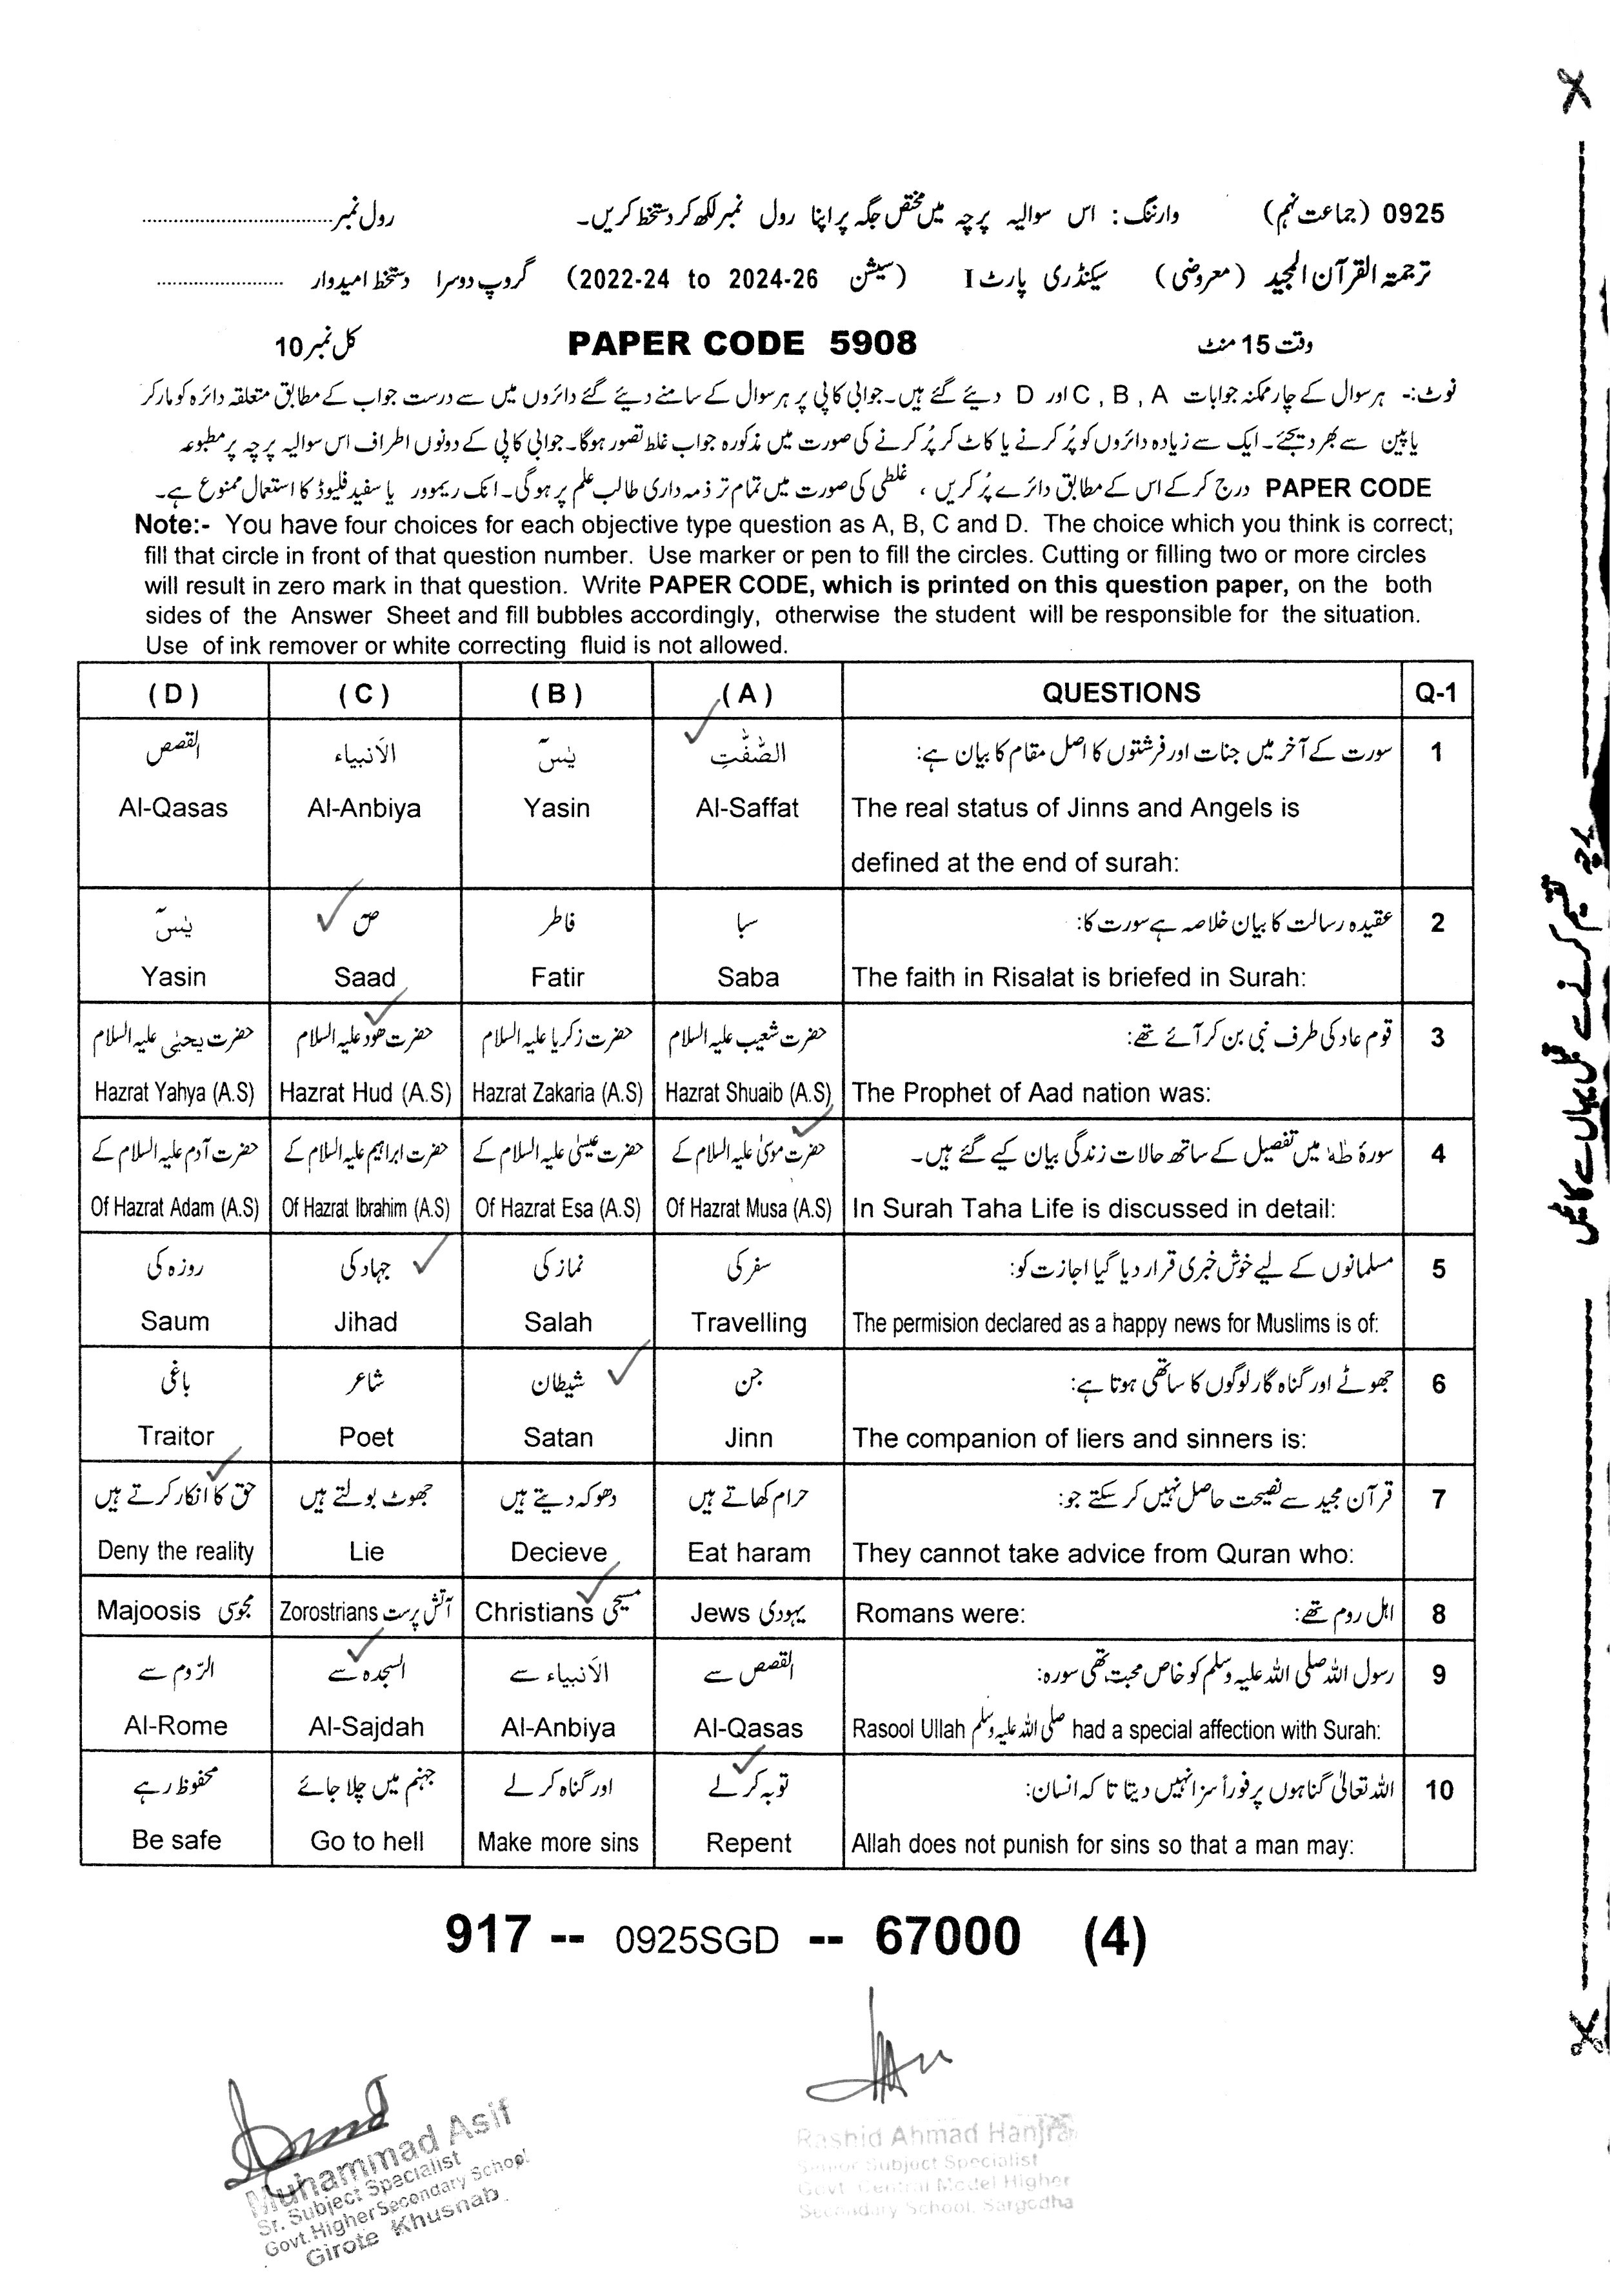 0925 (جماعت نہم) وارننگ: اس سوالیہ پرچہ میں مختص جگہ پر اپنا رول نمبر لکھ کر دستخط کریں۔ رول نمبر................................
ترجمتہ القرآن المجید (معروضی) سیکنڈری پارٹ I (سیشن 2022-24 to 2024-26) گروپ دوسرا دستخط امیدوار ......................
وقت 15 منٹ PAPER CODE 5908 کل نمبر 10
نوٹ:- ہر سوال کے چار ممکنہ جوابات C , B , A اور D دیئے گئے ہیں۔ جوابی کاپی پر ہر سوال کے سامنے دیئے گئے دائروں میں سے درست جواب کے مطابق متعلقہ دائرہ کو مارکر
یا پین سے بھر دیجئے۔ ایک سے زیادہ دائروں کو پُر کرنے یا کاٹ کر پُر کرنے کی صورت میں مذکورہ جواب غلط تصور ہوگا۔ جوابی کاپی کے دونوں اطراف اس سوالیہ پرچہ پر مطبوعہ
PAPER CODE درج کر کے اس کے مطابق دائرے پُر کریں ، غلطی کی صورت میں تمام تر ذمہ داری طالب علم پر ہوگی۔ انک ریموور یا سفید فلیوڈ کا استعمال ممنوع ہے۔
Note:- You have four choices for each objective type question as A, B, C and D. The choice which you think is correct;
fill that circle in front of that question number. Use marker or pen to fill the circles. Cutting or filling two or more circles
will result in zero mark in that question. Write PAPER CODE, which is printed on this question paper, on the both
sides of the Answer Sheet and fill bubbles accordingly, otherwise the student will be responsible for the situation.
Use of ink remover or white correcting fluid is not allowed.
(D) (C) (B) (A) QUESTIONS Q-1
القصص الاَنبیاء یٰسٓ الصّٰفّٰتِ سورت کے آخر میں جنات اور فرشتوں کا اصل مقام کا بیان ہے: 1
Al-Qasas Al-Anbiya Yasin Al-Saffat The real status of Jinns and Angels is
defined at the end of surah:
یٰسٓ صٓ فاطر سبا عقیدہ رسالت کا بیان خلاصہ ہے سورت کا: 2
Yasin Saad Fatir Saba The faith in Risalat is briefed in Surah:
حضرت یحیٰی علیہ السلام حضرت ھود علیہ السلام حضرت زکریا علیہ السلام حضرت شعیب علیہ السلام قوم عاد کی طرف نبی بن کر آئے تھے: 3
Hazrat Yahya (A.S) Hazrat Hud (A.S) Hazrat Zakaria (A.S) Hazrat Shuaib (A.S) The Prophet of Aad nation was:
حضرت آدم علیہ السلام کے حضرت ابراہیم علیہ السلام کے حضرت عیسیٰ علیہ السلام کے حضرت موسیٰ علیہ السلام کے سورۂ طٰہٰ میں تفصیل کے ساتھ حالات زندگی بیان کیے گئے ہیں۔ 4
Of Hazrat Adam (A.S) Of Hazrat Ibrahim (A.S) Of Hazrat Esa (A.S) Of Hazrat Musa (A.S) In Surah Taha Life is discussed in detail:
روزہ کی جہاد کی نماز کی سفر کی مسلمانوں کے لیے خوش خبری قرار دیا گیا اجازت کو: 5
Saum Jihad Salah Travelling The permision declared as a happy news for Muslims is of:
باغی شاعر شیطان جن جھوٹے اور گناہ گار لوگوں کا ساتھی ہوتا ہے: 6
Traitor Poet Satan Jinn The companion of liers and sinners is:
حق کا انکار کرتے ہیں جھوٹ بولتے ہیں دھوکہ دیتے ہیں حرام کھاتے ہیں قرآن مجید سے نصیحت حاصل نہیں کر سکتے جو: 7
Deny the reality Lie Decieve Eat haram They cannot take advice from Quran who:
Majoosis مجوسی Zorostrians آتش پرست Christians مسیحی Jews یہودی Romans were: اہل روم تھے: 8
الرّوم سے السجدہ سے الاَنبیاء سے القصص سے رسول اللہ صلی اللہ علیہ وسلم کو خاص محبت تھی سورہ: 9
Al-Rome Al-Sajdah Al-Anbiya Al-Qasas Rasool Ullah صلی اللہ علیہ وسلم had a special affection with Surah:
محفوظ رہے جہنم میں چلا جائے اور گناہ کر لے توبہ کر لے اللہ تعالیٰ گناہوں پر فوراً سزا نہیں دیتا تا کہ انسان: 10
Be safe Go to hell Make more sins Repent Allah does not punish for sins so that a man may:
917 -- 0925SGD -- 67000 (4)
Muhammad Asif
Sr. Subject Specialist
Govt. Higher Secondary School
Girote Khusnab.
Rashid Ahmad Hanjra
Senior Subject Specialist
Govt. Central Model Higher
Secondary School, Sargodha